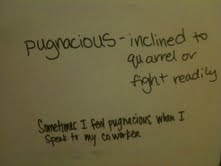 pugnacious - inclined to
quarrel or
fight readily
Sometimes I feel pugnacious when I
speak to my coworker